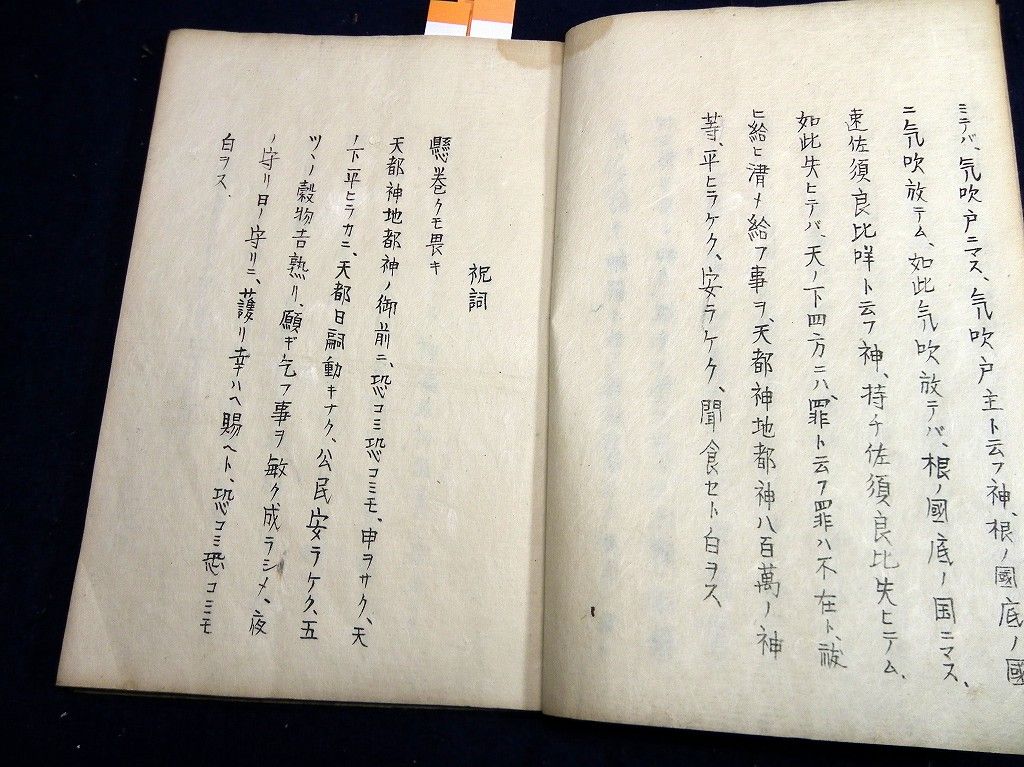 ミテバ、気吹戸ニマス、気吹戸主ト云フ神、根ノ國底ノ國
ニ気吹放テム、如此気吹放テバ、根ノ國底ノ国ニマス、
速佐須良比咩ト云フ神、持チ佐須良比失ヒテム、
如此失ヒテバ、天ノ下四方ニハ、罪ト云フ罪ハ不在ト、祓
ヒ給ヒ清メ給フ事ヲ、天都神地都神八百萬ノ神
等、平ヒラケク、安ラケク、聞食セト白ヲス、
祝詞
懸巻クモ畏キ
天都神地都神ノ御前ニ、恐コミ恐コミモ、申ヲサク、天
ノ下平ヒラカニ、天都日嗣動キナク、公民安ラケク、五
ツノ穀物吉熟リ、願ギ乞フ事ヲ敏ク成ラシメ、夜
ノ守リ日ノ守リニ、護リ幸ハヘ賜ヘト、恐コミ恐コミモ
白ヲス